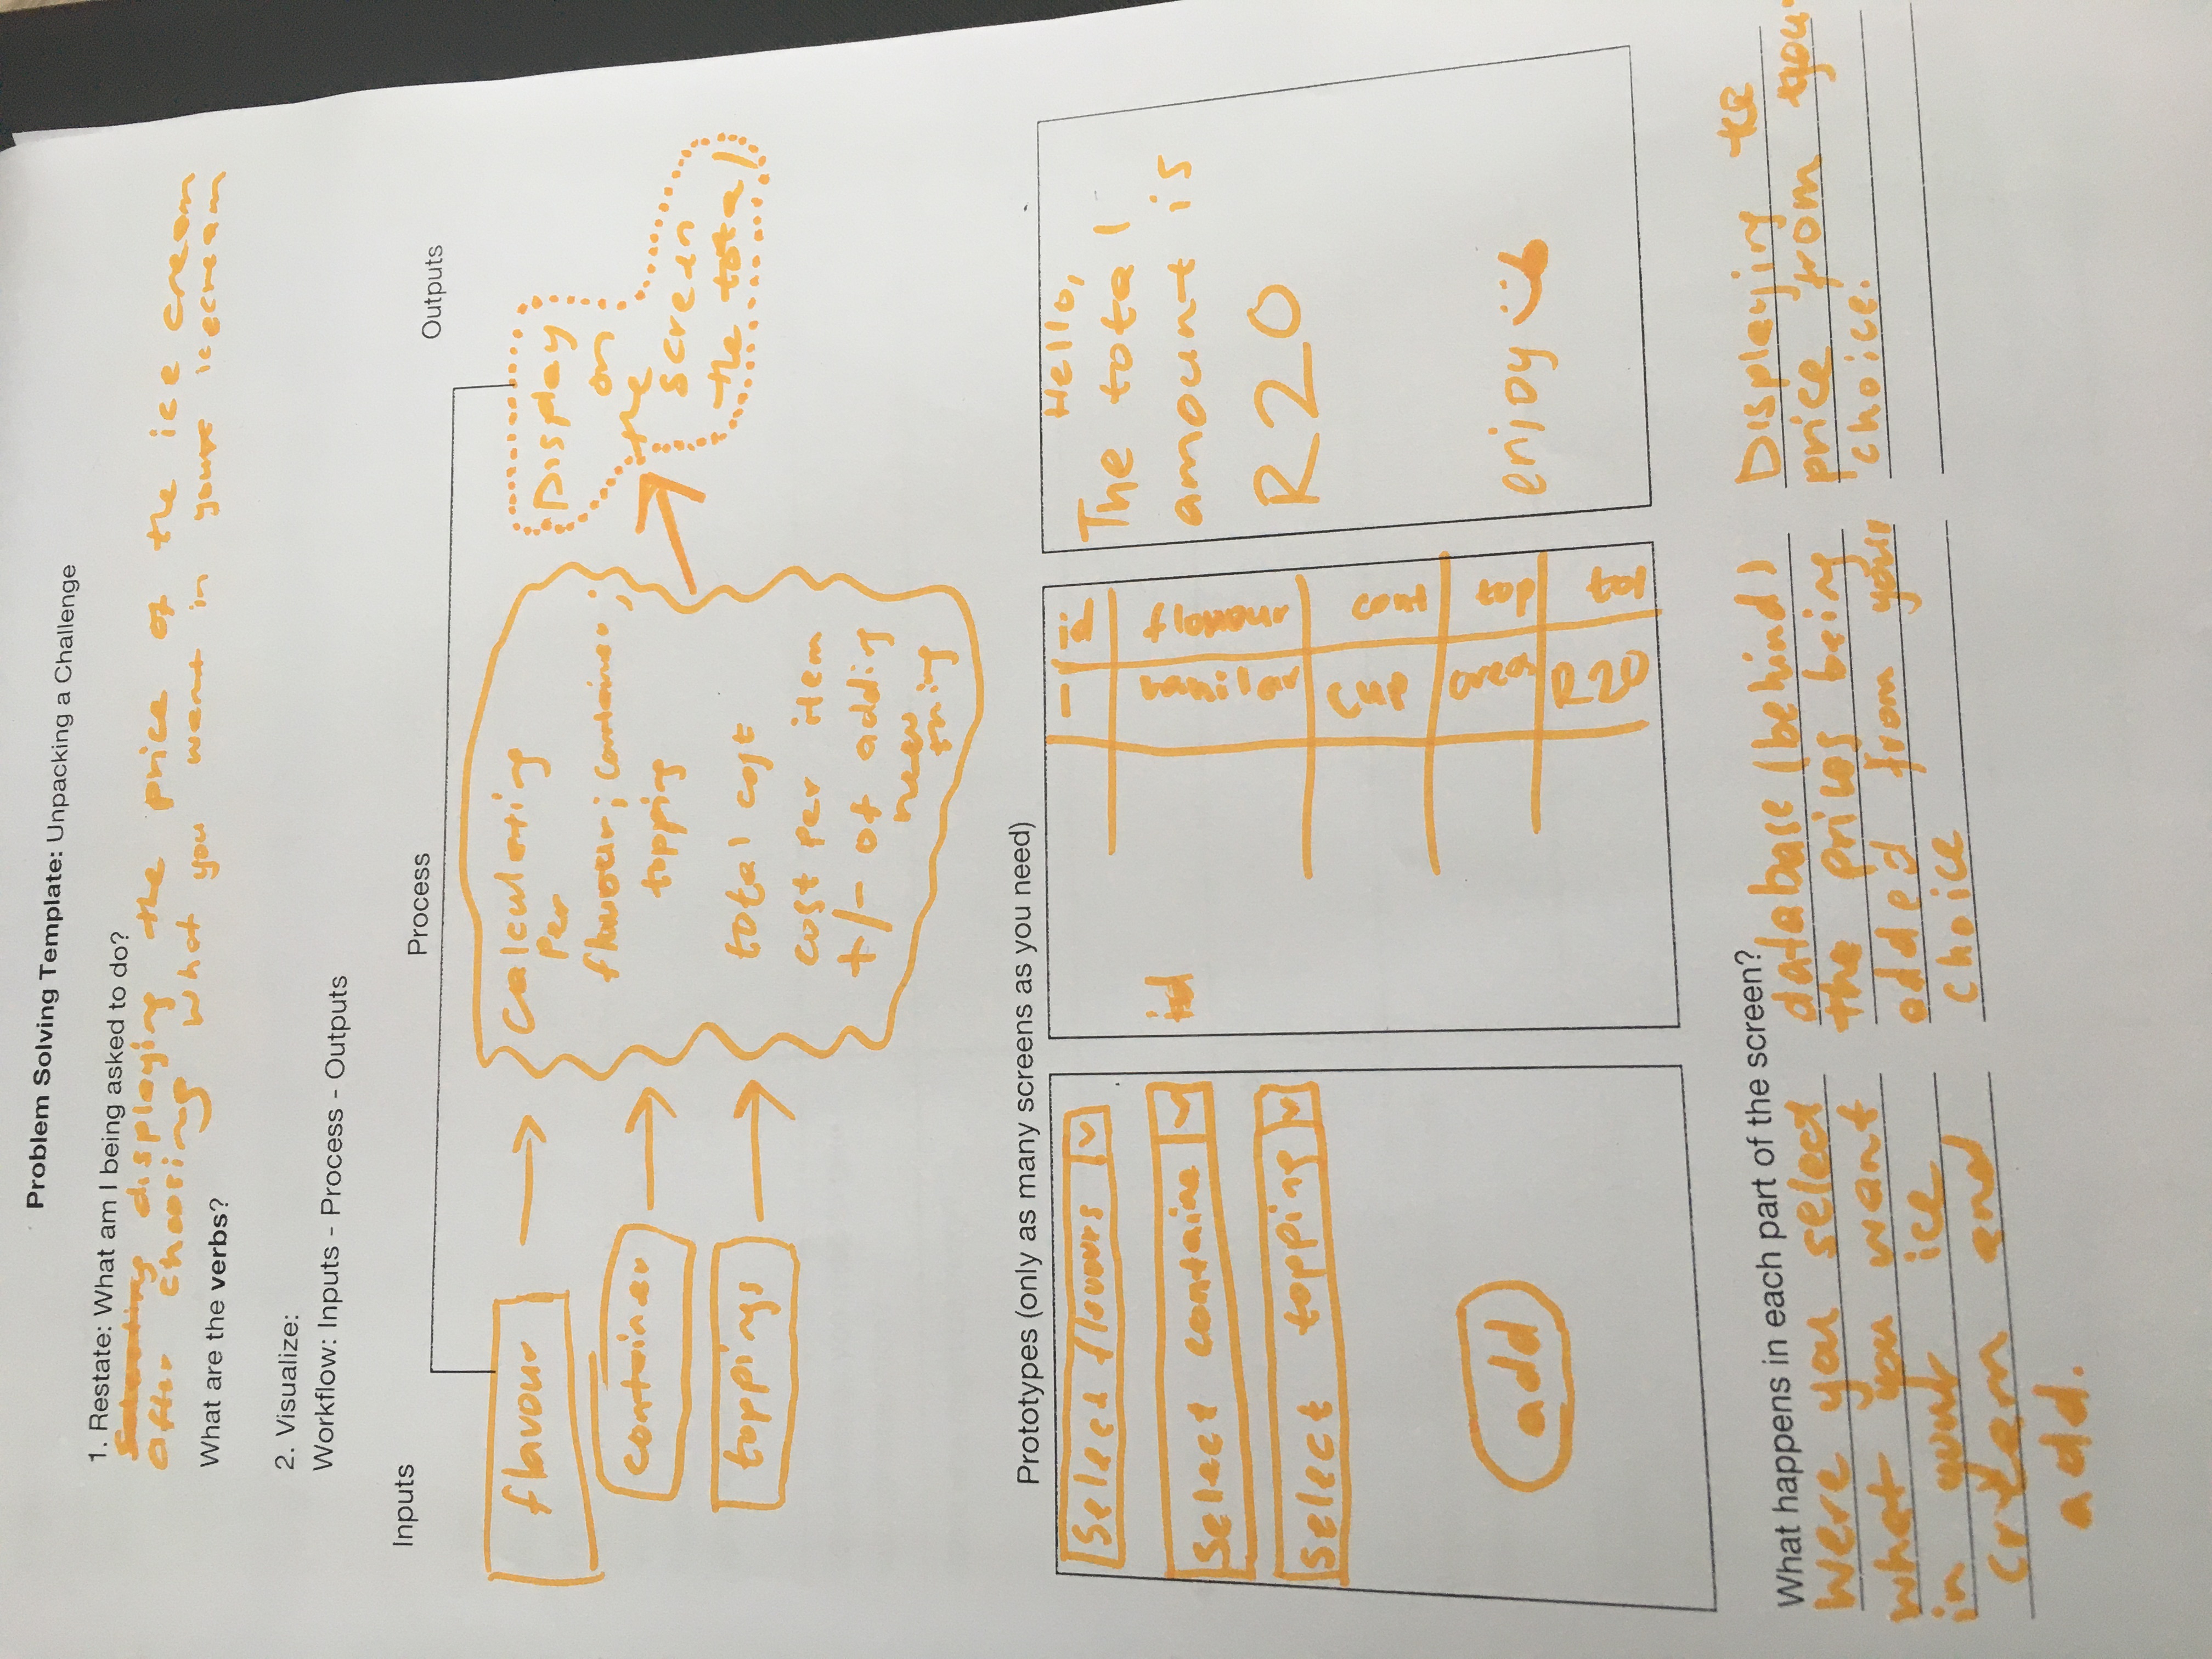 Problem Solving Template: Unpacking a Challenge
1. Restate: What am I being asked to do?
displaying the price of the ice cream
After choosing what you want in your icecream
What are the verbs?
2. Visualize:
Workflow: Inputs - Process - Outputs
Inputs
Process
Outputs
flavour
container
toppings
Calculating
Per
flavour; container;
topping
total cost
cost per item
+/- of adding
new
thing
Display
on
the
screen
the total
Prototypes (only as many screens as you need)
Select flavours
Select containe
Select topping
add
id
id flavour cont top tot
1 vanillar cup oreo R20
Hello,
The total
amount is
R20
enjoy
What happens in each part of the screen?
Were you select
what you want
in your ice
cream and
add.
database (behind)
the prices being
added from your
choice
Displaying the
price from you
choice.